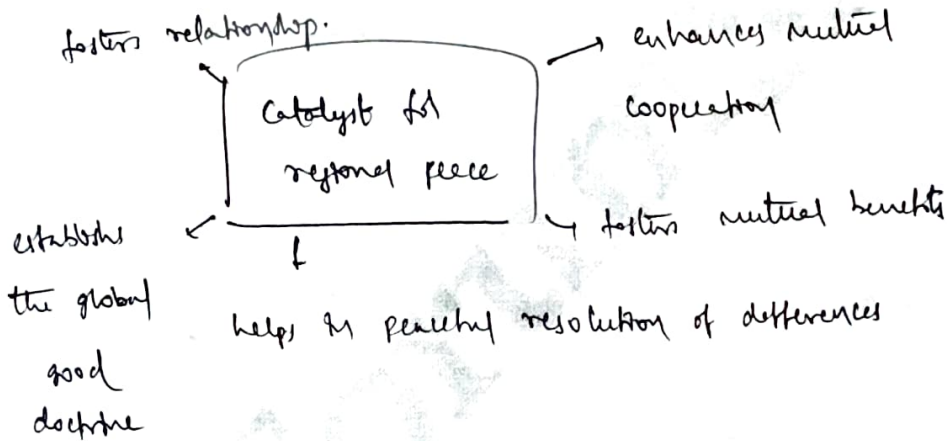 fosters relationship.
enhances mutual
cooperation
Catalyst for
regional peace
fosters mutual benefits
establishes
the global
good
doctrine
helps in peaceful resolution of differences